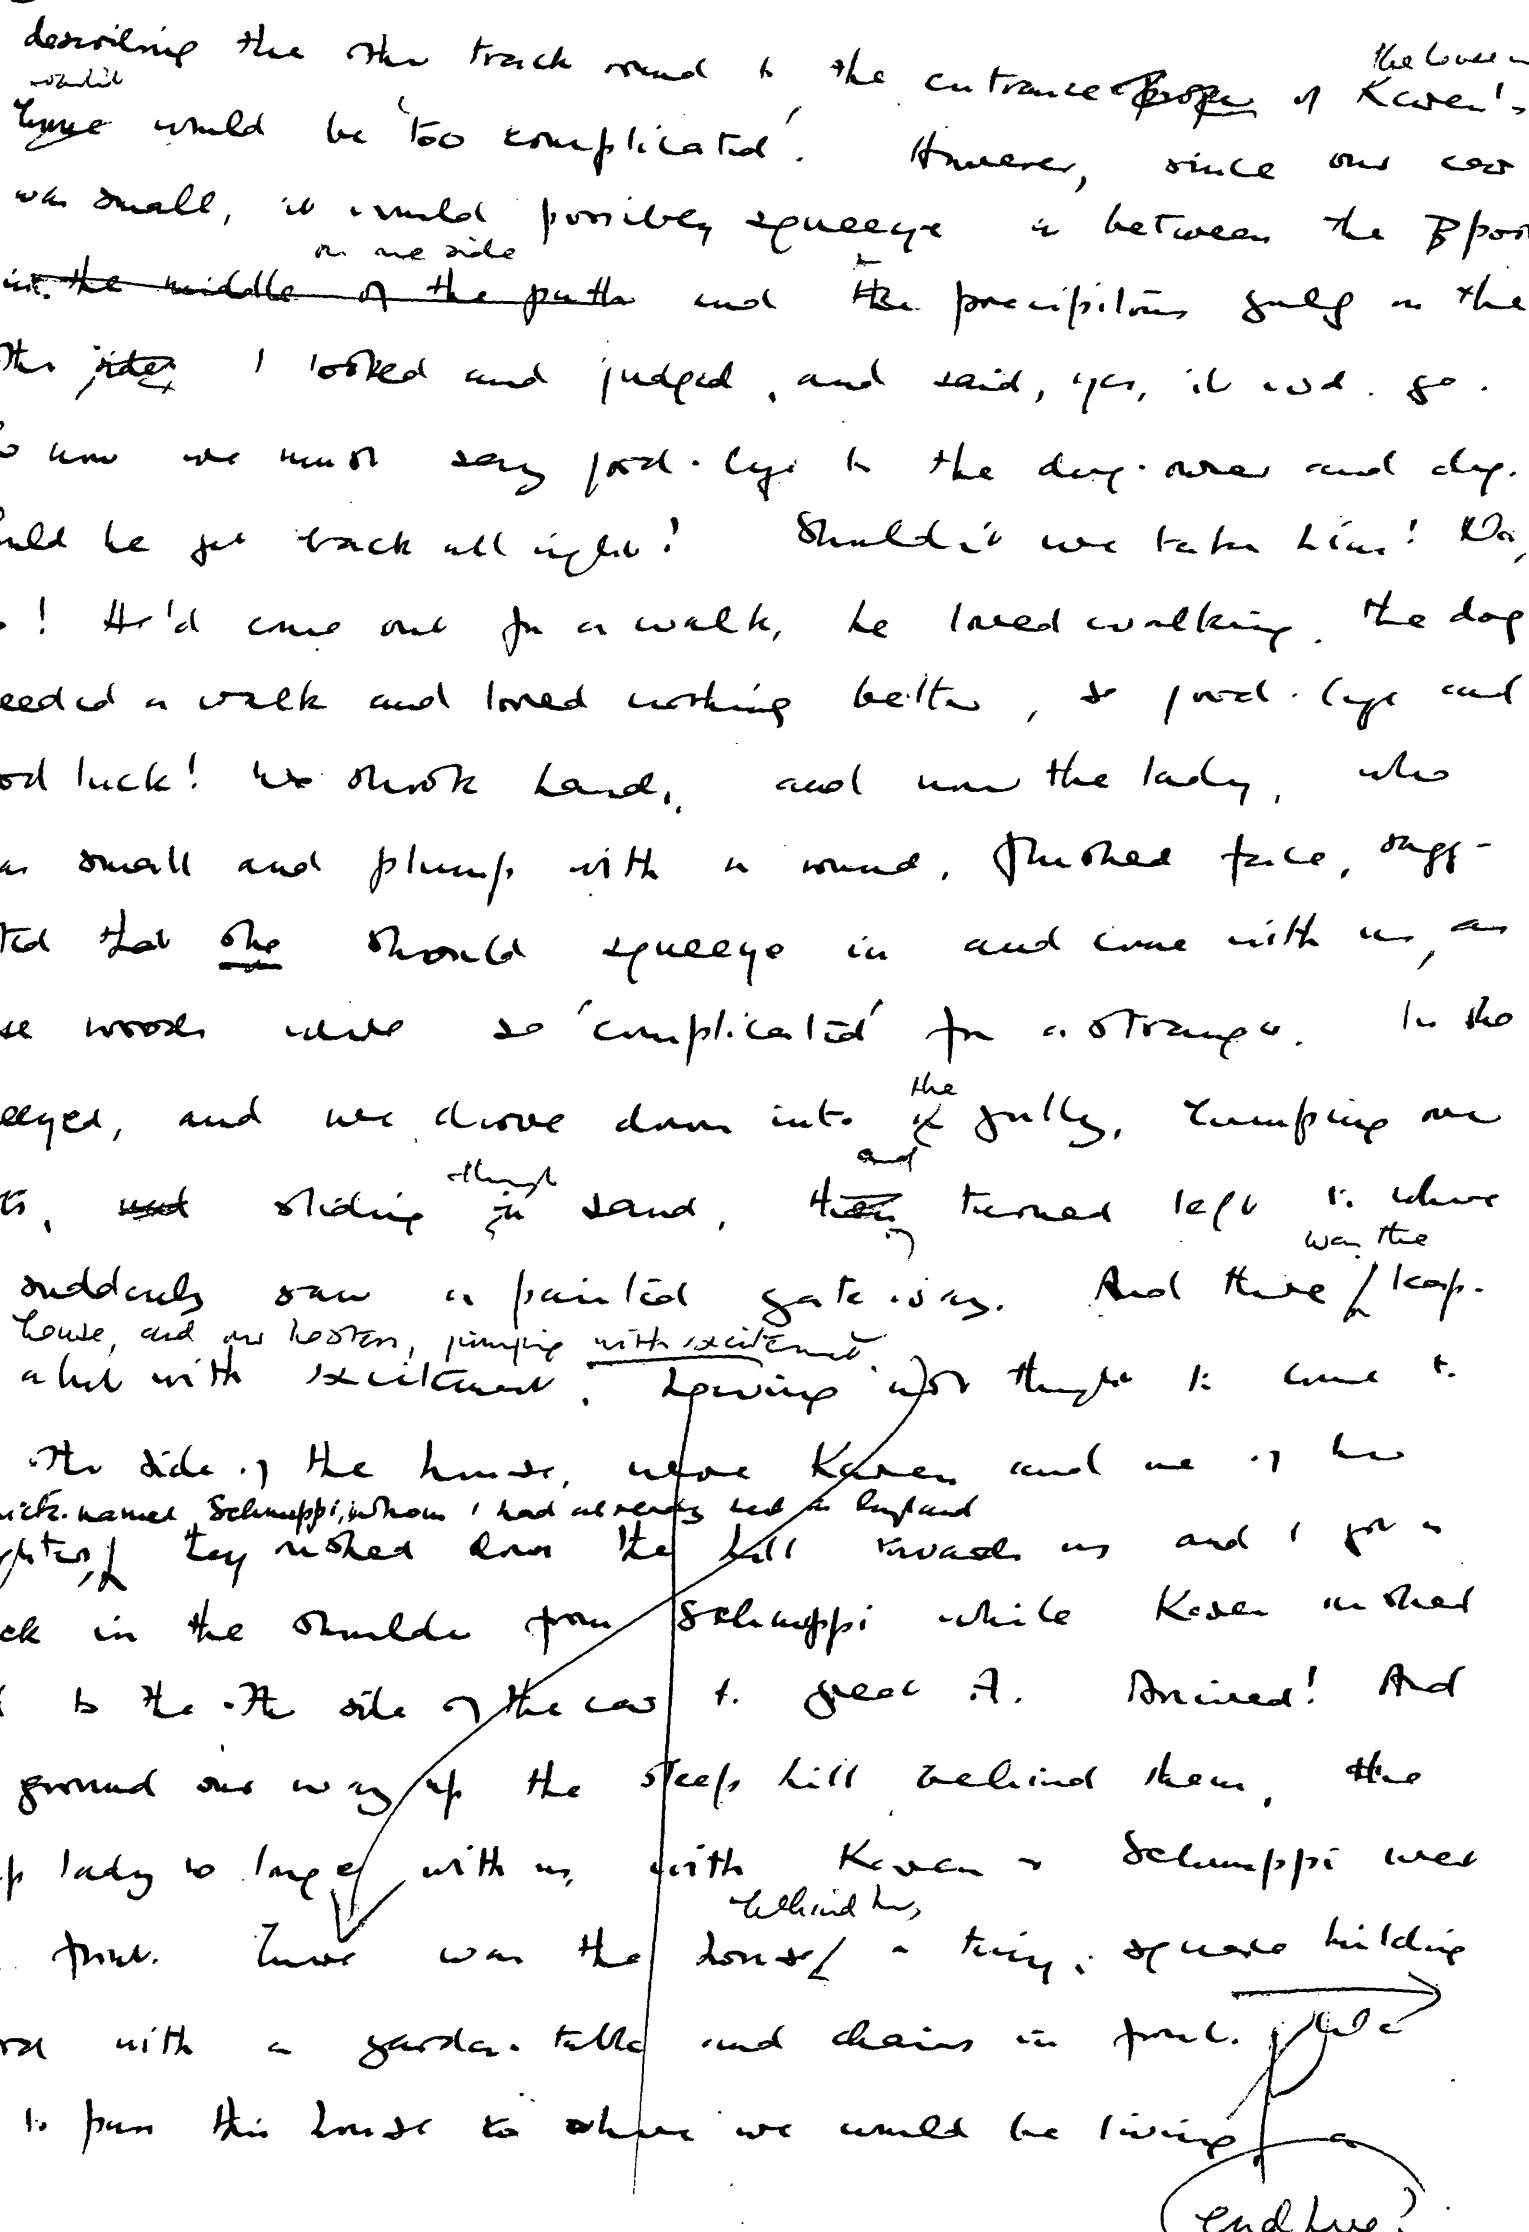 describing the other track round to the entrance proper of Karen's
the house
would be 'too complicated'. However, since our car
was small, it could possibly squeeze in between the post
on one side
in the middle of the path and the precipitous gully on the
other side. I looked and judged, and said, yes, it wd. go.
so now we must say good-bye to the dog-owner and dog.
ould he get back all right? Shouldn't we take him? No,
o! He'd come out for a walk, he loved walking, the dog
eeded a walk and loved nothing better, so good-bye and
od luck! We shook hands, and now the lady, who
as small and plump with a round, flushed face, sugg-
ted that she should squeeze in and come with us, as
se woods were so 'complicated' for a stranger. In she
the
eezed, and we drove down into gully, bumping over
through and
ts, and sliding in sand, then turned left to where
was the
suddenly saw a painted gateway. And there leap-
house, and our hostess, jumping with excitement.
about with excitement. Having not thought to come to
other side of the house, were Karen and one of her
nick-named Schnuppi, whom I had already met in England
ghters, they rushed down the hill towards us and I got a
ck in the shoulder from Schnuppi while Karen rushed
to the other side of the car to greet A. Arrived! And
ground our way up the steep hill behind them, the
p lady no longer with us, with Karen & Schnuppi
behind her,
front. There was the house a tiny, square building
with a garden-table and chairs in front.
to pass this house to where we would be living, a
end here?